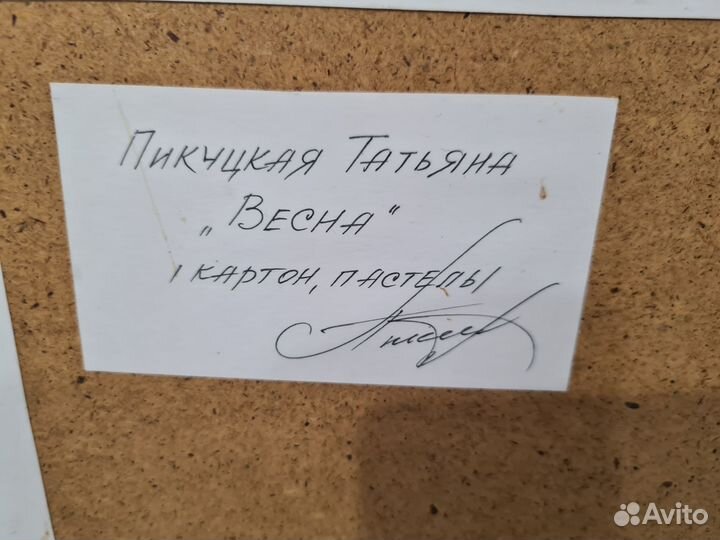 Пикуцкая Татьяна
„Весна“
/ картон, пастель /
Avito